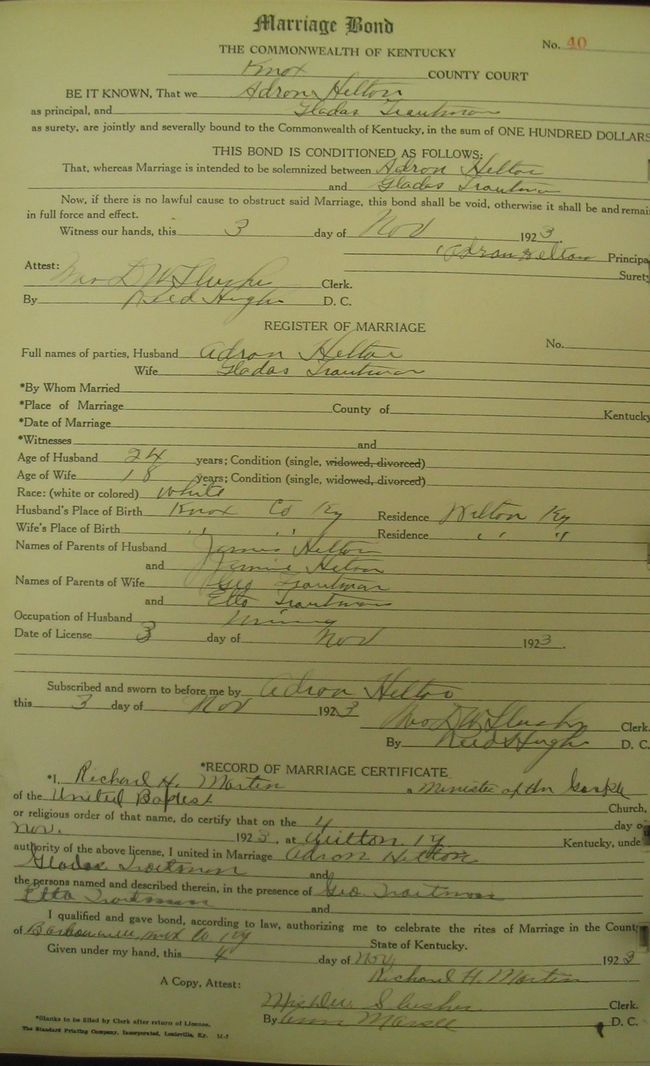 Marriage Bond
No. 40
THE COMMONWEALTH OF KENTUCKY
Knox COUNTY COURT
BE IT KNOWN, That we Adron Helton
as principal, and Gladas Trautman
as surety, are jointly and severally bound to the Commonwealth of Kentucky, in the sum of ONE HUNDRED DOLLARS
THIS BOND IS CONDITIONED AS FOLLOWS:
That, whereas Marriage is intended to be solemnized between Adron Helton
and Gladas Trautman
Now, if there is no lawful cause to obstruct said Marriage, this bond shall be void, otherwise it shall be and remain
in full force and effect.
Witness our hands, this 3 day of Nov 1923.
Adron Helton Principal
Surety
Attest: Clerk.
By Reed Hughs D. C.
REGISTER OF MARRIAGE
No.
Full names of parties, Husband Adron Helton
Wife Gladas Trautman
*By Whom Married
*Place of Marriage County of Kentucky
*Date of Marriage
*Witnesses and
Age of Husband 24 years; Condition (single, widowed, divorced)
Age of Wife 18 years; Condition (single, widowed, divorced)
Race: (white or colored) White
Husband's Place of Birth Knox Co Ky Residence Wilton Ky
Wife's Place of Birth " " Residence " "
Names of Parents of Husband James Helton
and Helton
Names of Parents of Wife Geo Trautman
and Etta Trautman
Occupation of Husband Mining
Date of License 3 day of Nov 1923.
Subscribed and sworn to before me by Adron Helton
this 3 day of Nov 1923
Clerk.
By Reed Hughs D. C.
*RECORD OF MARRIAGE CERTIFICATE
*I, Richard H. Martin a Minister of the Gosple
of the United Baptest Church,
or religious order of that name, do certify that on the 4 day o
Nov. 1923, at Wilton Ky Kentucky, unde
authority of the above license, I united in Marriage Adron Helton
Gladas Trautman and
the persons named and described therein, in the presence of Geo Trautman
Etta Trautman and
I qualified and gave bond, according to law, authorizing me to celebrate the rites of Marriage in the Count
of Barbourville Knox Co Ky State of Kentucky.
Given under my hand, this 4 day of Nov. 1923
Richard H. Martin
A Copy, Attest:
Slusher Clerk.
By D. C.
*Blanks to be filled by Clerk after return of License.
The Standard Printing Company, Incorporated, Louisville, Ky.